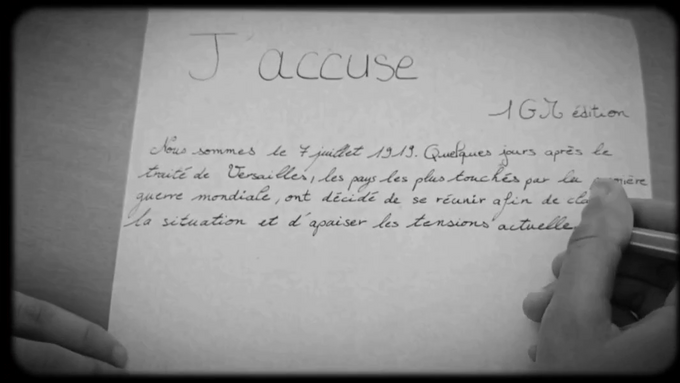 J'accuse
1GM édition
Nous sommes le 7 juillet 1919. Quelques jours après le
traité de Versailles, les pays les plus touchés par la
guerre mondiale, ont décidé de se réunir afin de
la situation et d'apaiser les tensions actuelle